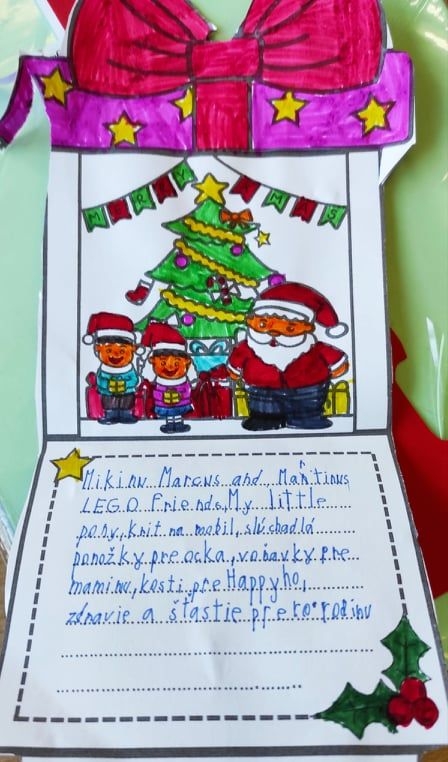 MERRY XMAS
Mikinu Marcus and Martinus,
LEGO Friends, My little
pony, kryt na mobil, slúchadlá
ponožky pre ocka, voňavky pre
maminu, kosti pre Happyho,
zdravie a šťastie pre rodinu